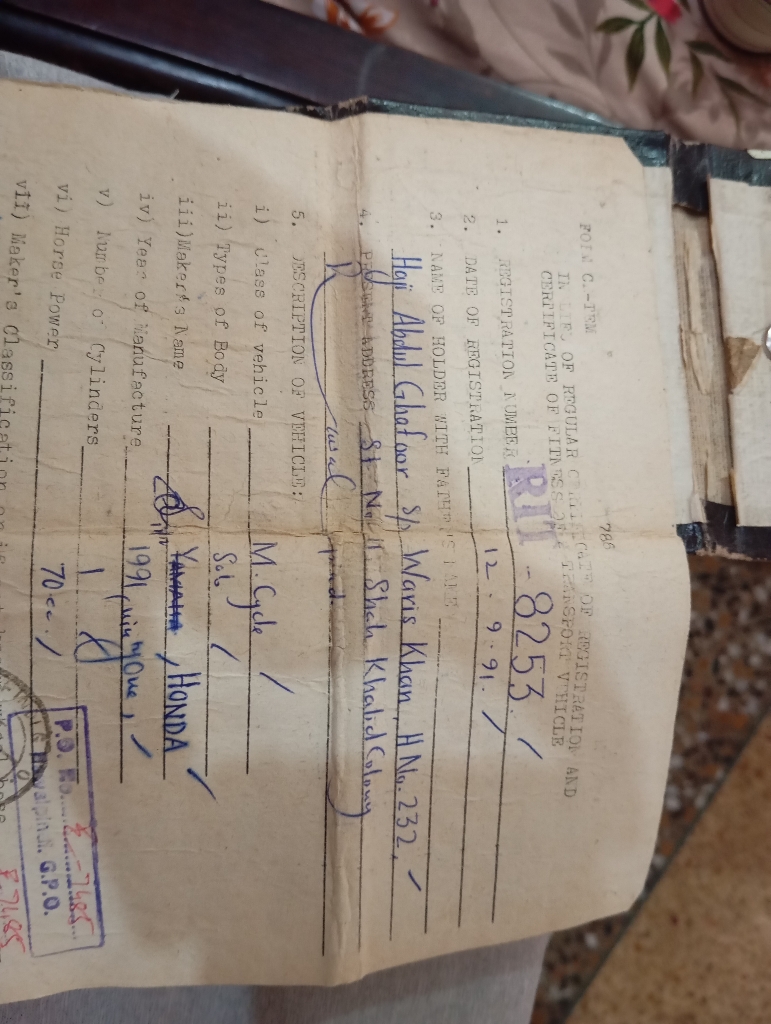 786
FORM C.-TEM
IN LIEU OF REGULAR CERTIFICATE OF REGISTRATION AND
CERTIFICATE OF FITNESS OF A TRANSPORT VEHICLE
1. REGISTRATION NUMBER RIT - 8253
2. DATE OF REGISTRATION 12.9.91.
3. NAME OF HOLDER WITH FATHER'S NAME
Haji Abdul Ghafoor S/o Waris Khan, H No. 232,
4. PRESENT ADDRESS St No 11 Shah Khalid Colony
pind.
5. DESCRIPTION OF VEHICLE:
i) Class of vehicle M. Cycle
ii) Types of Body
iii) Maker's Name YAMAHA, HONDA
iv) Year of Manufacture 1991 (ninty one,
v) Number of Cylinders 1
vi) Horse Power 70 cc.
vii) Maker's Classification or
P.O. No. 7485
Rawalpindi G.P.O.
7485